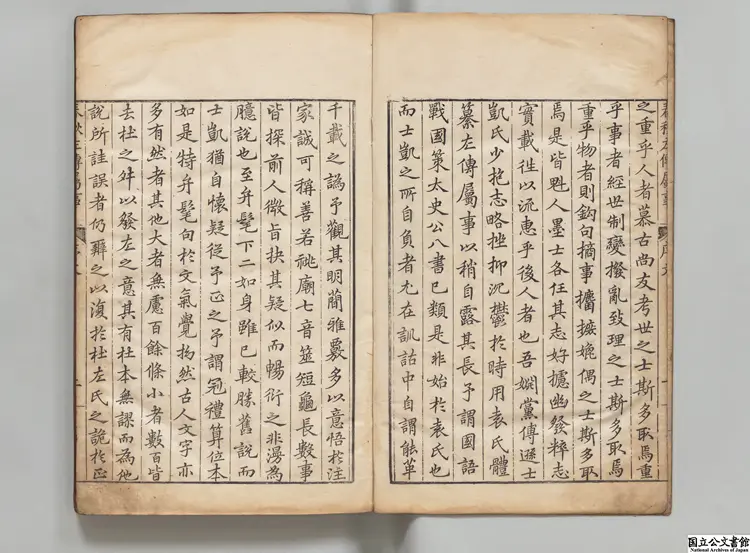 春秋左傳屬事
之重乎人者慕古尚友考世之士斯多取焉重
乎事者經世制變撥亂致理之士斯多取焉
重乎物者則鈎句摘事媲偶之士斯多取
焉是皆魁人墨士各任其志好攄幽發粹志
實載徃以流惠乎後人者也吾姻黨傅遜士
凱氏少抱志略挫抑沉鬱於時用袁氏體
纂左傳屬事以稍自露其長予謂國語
戰國策太史公八書已類是非始於袁氏也
而士凱之所自負者尤在訓詁中自謂能革
千載之譌予觀其明蕳雅覈多以意悟於注
家誠可稱善若祧廟七音筮短龜長數事
皆探前人微旨抉其疑似而暢衍之非漫為
臆說也至弁髦下二如身雖已較勝舊說而
士凱猶自懷疑從予正之予謂冠禮算位本
如是特弁髦句於文氣覺拗然古人文字亦
多有然者其他大者無慮百餘條小者數百皆
去杜之舛以發左之意其有杜本無謬而為他
說所詿誤者仍辭之以復於杜左氏之詭於正
国立公文書館
National Archives of Japan